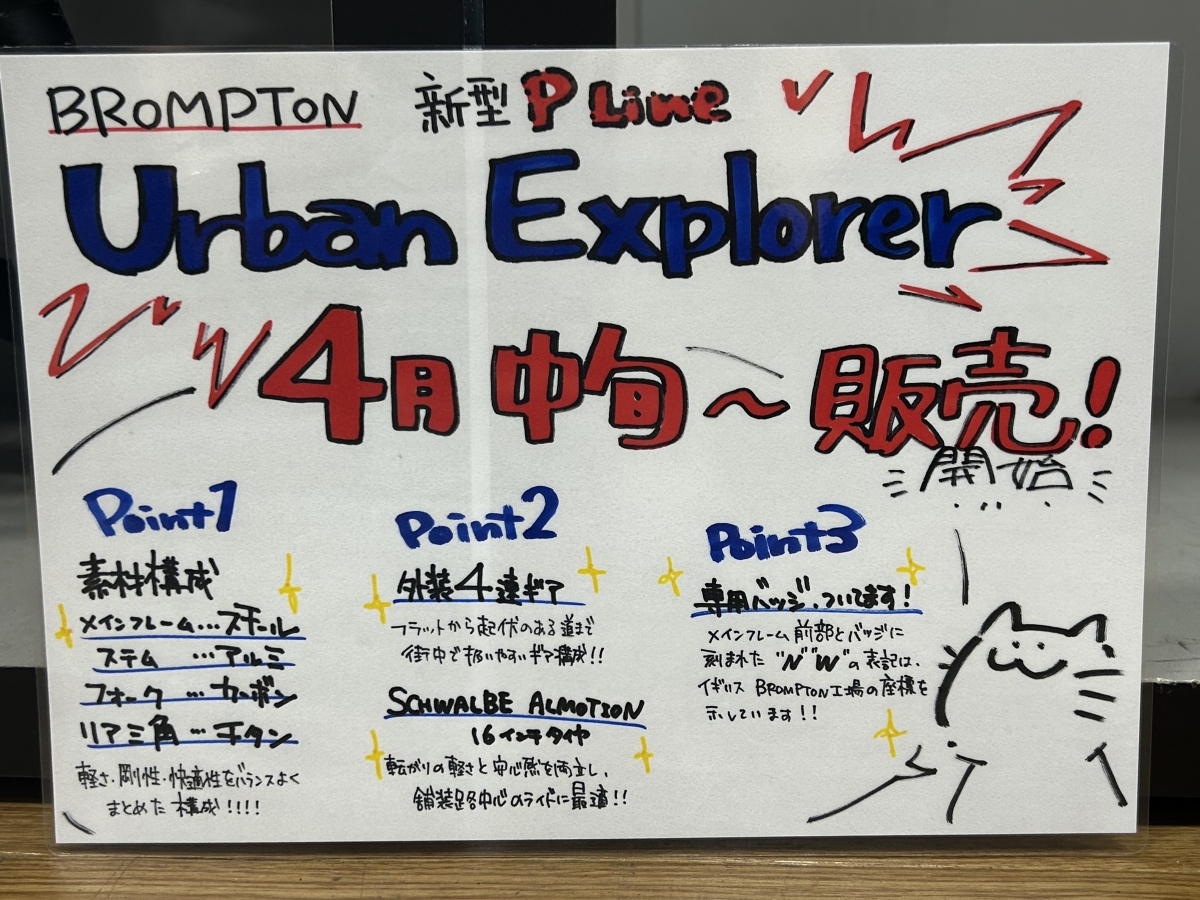 BROMPTON 新型 P Line
Urban Explorer
4月中旬～販売!
開始
Point1
素材構成
メインフレーム…スチール
ステム …アルミ
フォーク …カーボン
リア三角…チタン
軽さ・剛性・快適性をバランスよく
まとめた構成!!!!
Point2
外装4速ギア
フラットから起伏のある道まで
街中で扱いやすいギア構成!!
SCHWALBE ALMOTION
16インチタイヤ
転がりの軽さと安心感を両立し、
舗装路中心のライドに最適!!
Point3
専用バッジ、ついてます!
メインフレーム前部とバッジに
刻まれた"N""W"の表記は、
イギリス BROMPTON工場の座標を
示しています!!